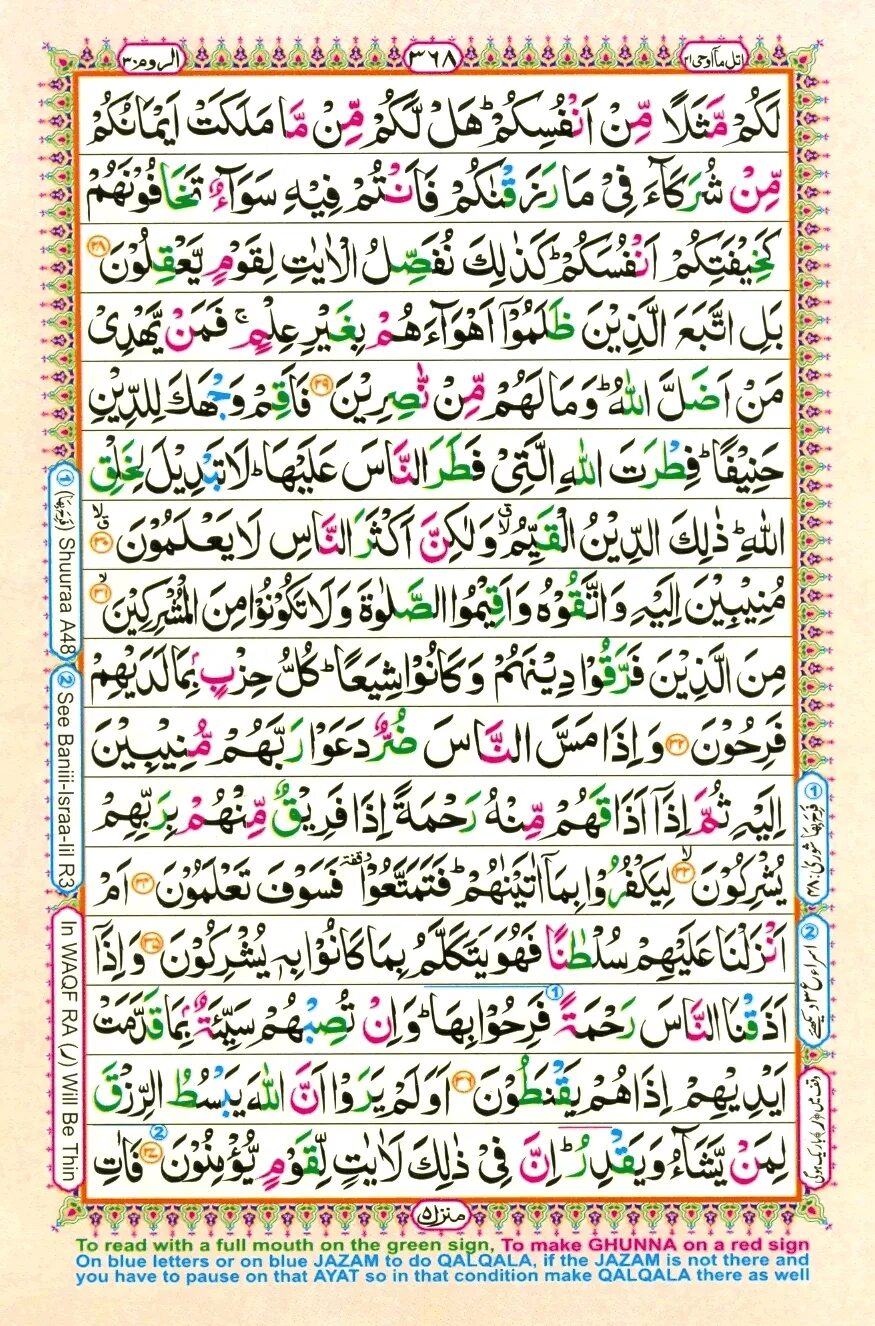 اتل ما اوحی ۲۱
۳۶۸
الروم ۳۰
لَكُمْ مَّثَلًا مِّنْ اَنْفُسِكُمْ ؕ هَلْ لَّكُمْ مِّنْ مَّا مَلَكَتْ اَيْمَانُكُمْ
مِّنْ شُرَكَآءَ فِیْ مَا رَزَقْنٰكُمْ فَاَنْتُمْ فِيْهِ سَوَآءٌ تَخَافُوْنَهُمْ
كَخِيْفَتِكُمْ اَنْفُسَكُمْ ؕ كَذٰلِكَ نُفَصِّلُ الْاٰيٰتِ لِقَوْمٍ يَّعْقِلُوْنَ ۲۸
بَلِ اتَّبَعَ الَّذِيْنَ ظَلَمُوْٓا اَهْوَآءَهُمْ بِغَيْرِ عِلْمٍ ۚ فَمَنْ يَّهْدِیْ
مَنْ اَضَلَّ اللّٰهُ ؕ وَمَا لَهُمْ مِّنْ نّٰصِرِيْنَ ۲۹ فَاَقِمْ وَجْهَكَ لِلدِّيْنِ
حَنِيْفًا ؕ فِطْرَتَ اللّٰهِ الَّتِیْ فَطَرَ النَّاسَ عَلَيْهَا ؕ لَا تَبْدِيْلَ لِخَلْقِ
اللّٰهِ ؕ ذٰلِكَ الدِّيْنُ الْقَيِّمُ ۙۗ وَلٰكِنَّ اَكْثَرَ النَّاسِ لَا يَعْلَمُوْنَ ۳۰ ۙۗ
مُنِيْبِيْنَ اِلَيْهِ وَاتَّقُوْهُ وَاَقِيْمُوا الصَّلٰوةَ وَلَا تَكُوْنُوْا مِنَ الْمُشْرِكِيْنَ ۳۱ ۙ
مِنَ الَّذِيْنَ فَرَّقُوْا دِيْنَهُمْ وَكَانُوْا شِيَعًا ؕ كُلُّ حِزْبٍۭ بِمَا لَدَيْهِمْ
فَرِحُوْنَ ۳۲ وَاِذَا مَسَّ النَّاسَ ضُرٌّ دَعَوْا رَبَّهُمْ مُّنِيْبِيْنَ
اِلَيْهِ ثُمَّ اِذَآ اَذَاقَهُمْ مِّنْهُ رَحْمَةً اِذَا فَرِيْقٌ مِّنْهُمْ بِرَبِّهِمْ
يُشْرِكُوْنَ ۳۳ ۙ لِيَكْفُرُوْا بِمَآ اٰتَيْنٰهُمْ ؕ فَتَمَتَّعُوْا وقفة فَسَوْفَ تَعْلَمُوْنَ ۳۴ اَمْ
اَنْزَلْنَا عَلَيْهِمْ سُلْطٰنًا فَهُوَ يَتَكَلَّمُ بِمَا كَانُوْا بِهٖ يُشْرِكُوْنَ ۳۵ وَاِذَآ
اَذَقْنَا النَّاسَ رَحْمَةً فَرِحُوْا بِهَا 1 ؕ وَاِنْ تُصِبْهُمْ سَيِّئَةٌۢ بِمَا قَدَّمَتْ
اَيْدِيْهِمْ اِذَا هُمْ يَقْنَطُوْنَ ۳۶ اَوَلَمْ يَرَوْا اَنَّ اللّٰهَ يَبْسُطُ الرِّزْقَ
لِمَنْ يَّشَآءُ وَيَقْدِرُ ؕ اِنَّ فِیْ ذٰلِكَ لَاٰيٰتٍ لِّقَوْمٍ يُّؤْمِنُوْنَ ۳۷ 2 فَاٰتِ
منزل ۵
1 (فَرِحَ بِهَا) Shuuraa A48
2 See Baniii-Israa-Iil R3
In WAQF RA (ر) Will Be Thin
1 فَرِحَ بِهَا شوریٰ ۴۸
2 اسراء ع ۳ دیکھئے
وقف میں (ر) باریک ہوگی
To read with a full mouth on the green sign, To make GHUNNA on a red sign
On blue letters or on blue JAZAM to do QALQALA, if the JAZAM is not there and
you have to pause on that AYAT so in that condition make QALQALA there as well